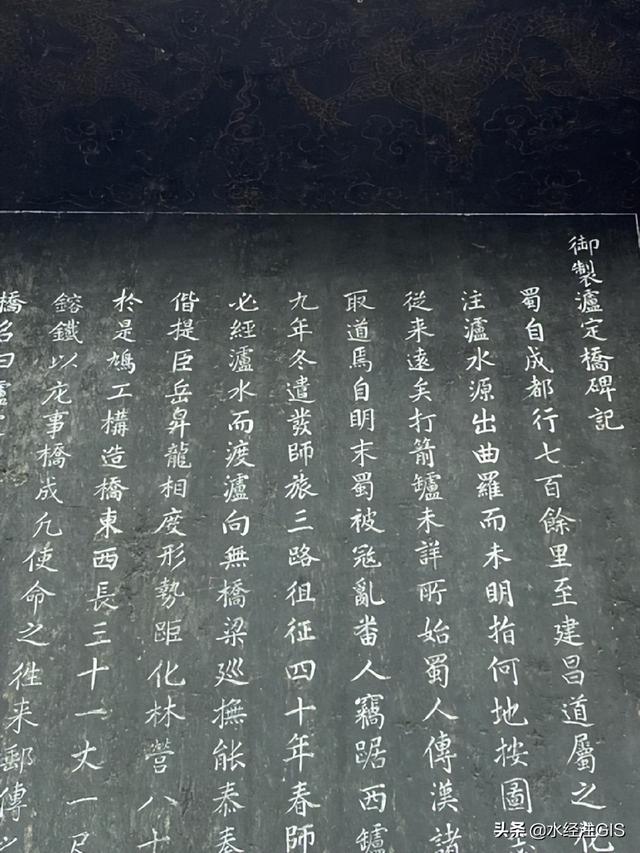 御製瀘定橋碑記
蜀自成都行七百餘里至建昌道屬之化
注瀘水源出曲羅而未明指何地按圖
從来逺矣打箭鑪未詳所始蜀人傳漢諸
取道焉自明末蜀被冦亂番人竊踞西鑪
九年冬遣發師旅三路徂征四十年春師
必經瀘水而渡瀘向無橋梁廵撫能泰奏
偕提臣岳昇龍相度形勢距化林營八十
於是鳩工構造橋東西長三十一丈一尺
鎔鐵以庀事橋成凡使命之徃来郵傳之
橋名曰瀘
头条 @水经注GIS